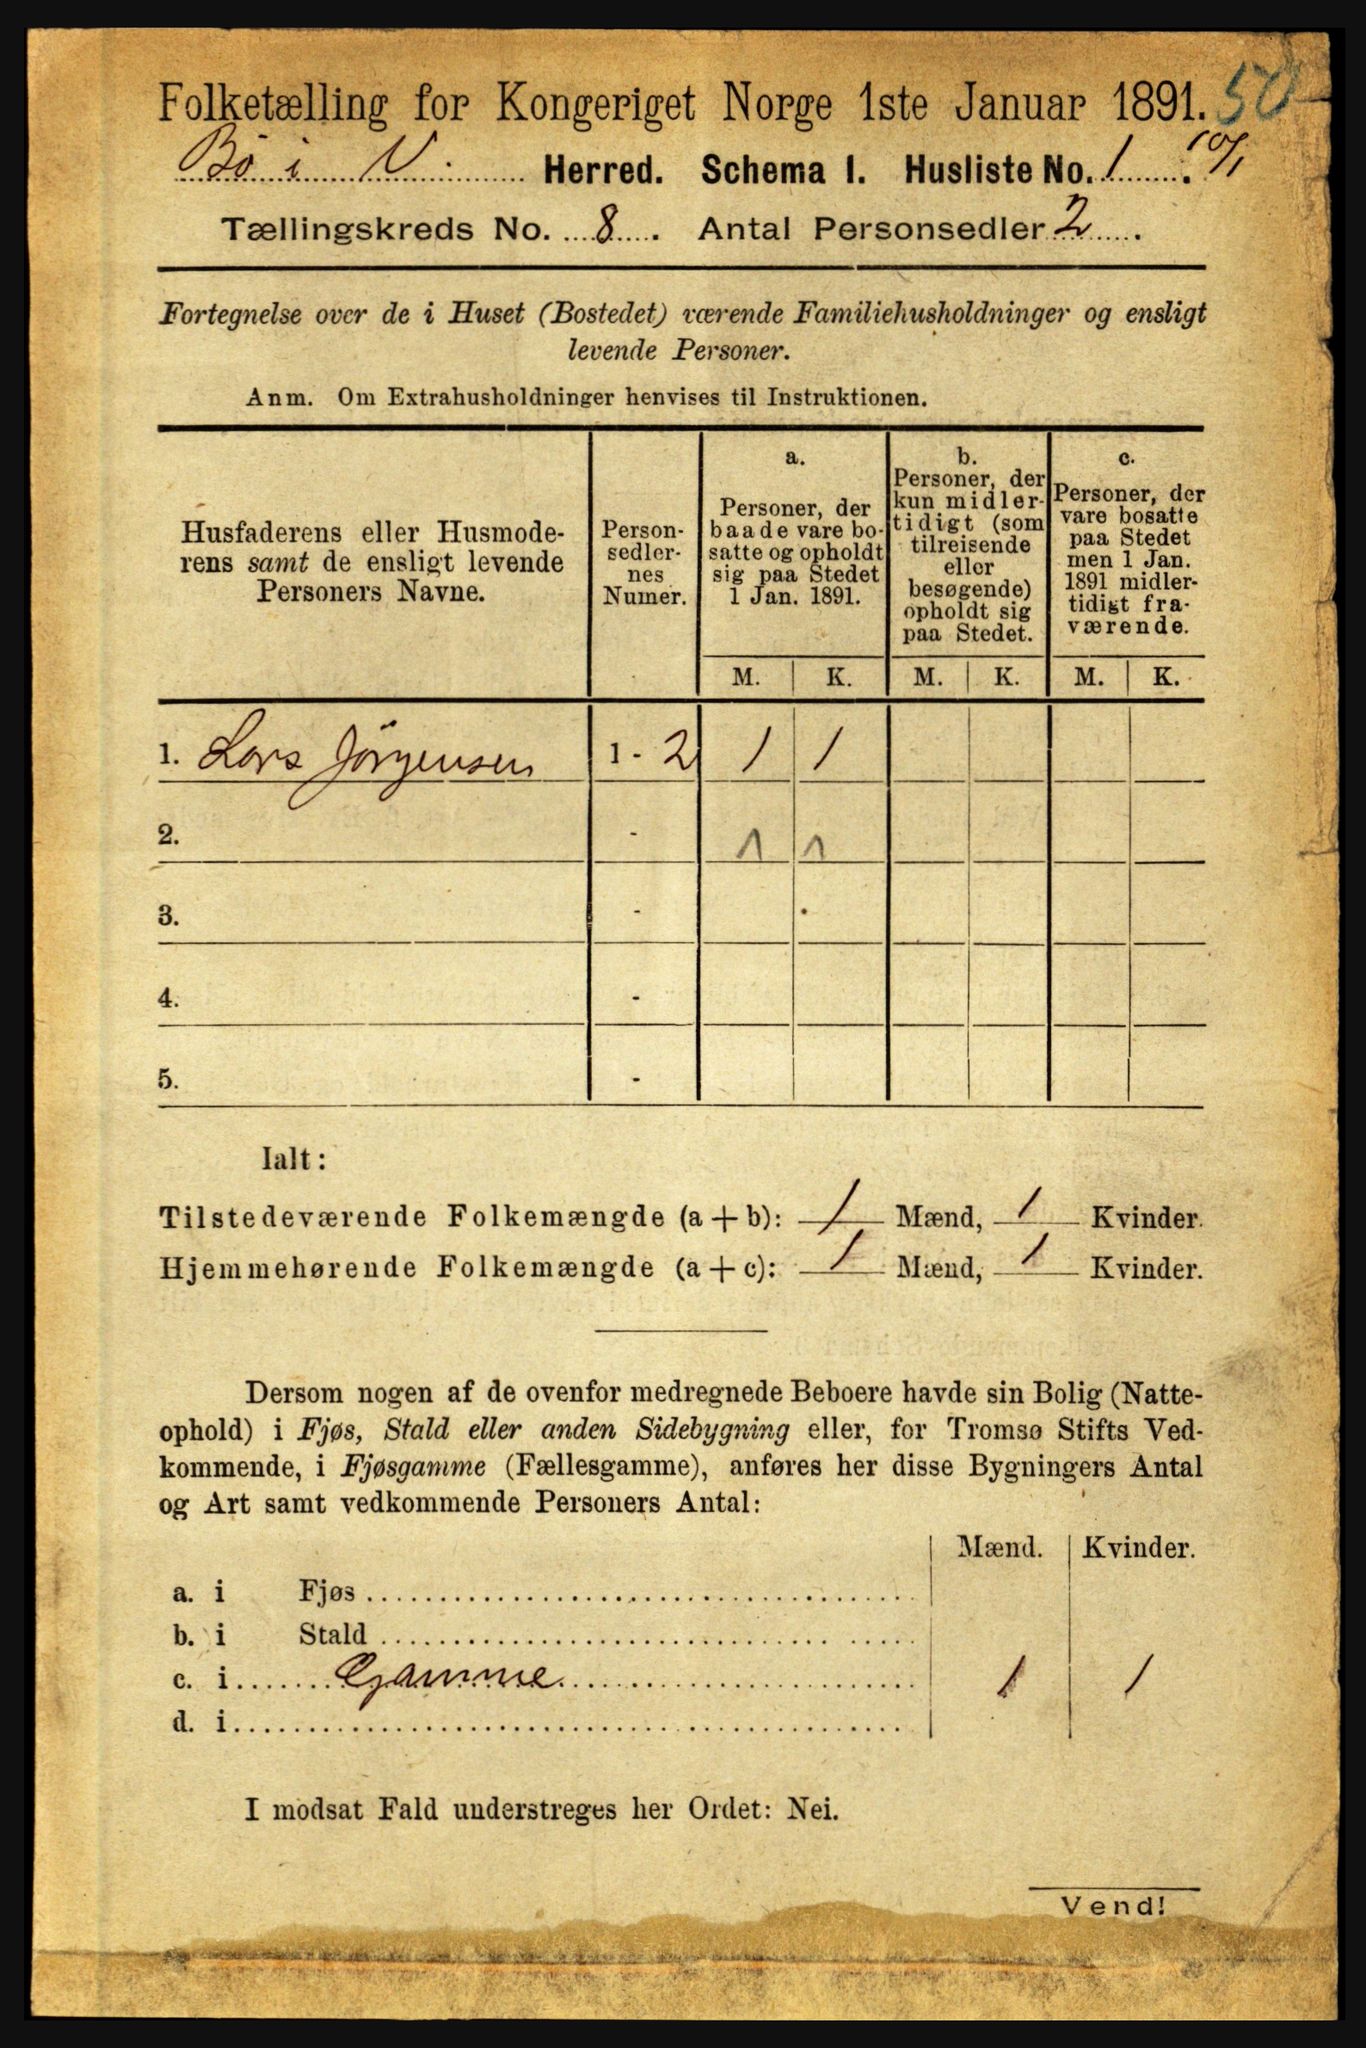 Folketælling for Kongeriget Norge 1ste Januar 1891. 50
Bö i V. Herred. Schema I. Husliste No. 1.
Tællingskreds No. 8. Antal Personsedler 2.
Fortegnelse over de i Huset (Bostedet) værende Familiehusholdninger og ensligt
levende Personer.
Anm. Om Extrahusholdninger henvises til Instruktionen.
Husfaderens eller Husmode-
rens samt de ensligt levende
Personers Navne.
Person-
sedler-
nes
Numer.
a.
Personer, der
baade vare bo-
satte og opholdt
sig paa Stedet
1 Jan. 1891.
b.
Personer, der
kun midler-
tidigt (som
tilreisende
eller
besøgende)
opholdt sig
paa Stedet.
c.
Personer, der
vare bosatte
paa Stedet
men 1 Jan.
1891 midler-
tidigt fra-
værende.
M. K. M. K. M. K.
1. Lars Jörgensen 1 - 2 1 1
2. - 1 1
3. -
4. -
5. -
Ialt:
Tilstedeværende Folkemængde (a + b): 1 Mænd, 1 Kvinder.
Hjemmehørende Folkemængde (a + c): 1 Mænd, 1 Kvinder.
Dersom nogen af de ovenfor medregnede Beboere havde sin Bolig (Natte-
ophold) i Fjøs, Stald eller anden Sidebygning eller, for Tromsø Stifts Ved-
kommende, i Fjøsgamme (Fællesgamme), anføres her disse Bygningers Antal
og Art samt vedkommende Personers Antal:
Mænd. Kvinder.
a. i Fjøs
b. i Stald
c. i Gamme 1 1
d. i
I modsat Fald understreges her Ordet: Nei.
Vend!